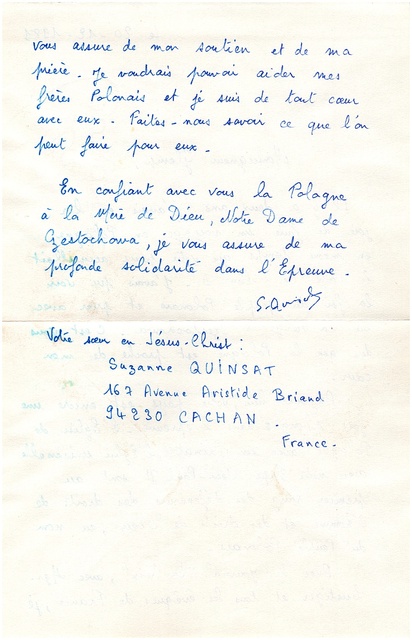 vous assure de mon soutien et de ma
prière. Je voudrais pouvoir aider mes
frères Polonais et je suis de tout cœur
avec eux. Faites-nous savoir ce que l'on
peut faire pour eux.
En confiant avec vous la Pologne
à la Mère de Dieu, Notre Dame de
Czestochowa, je vous assure de ma
profonde solidarité dans l'Epreuve.
S. Quinsat
Votre sœur en Jésus-Christ :
Suzanne QUINSAT
167 Avenue Aristide Briand
94230 CACHAN.
France.